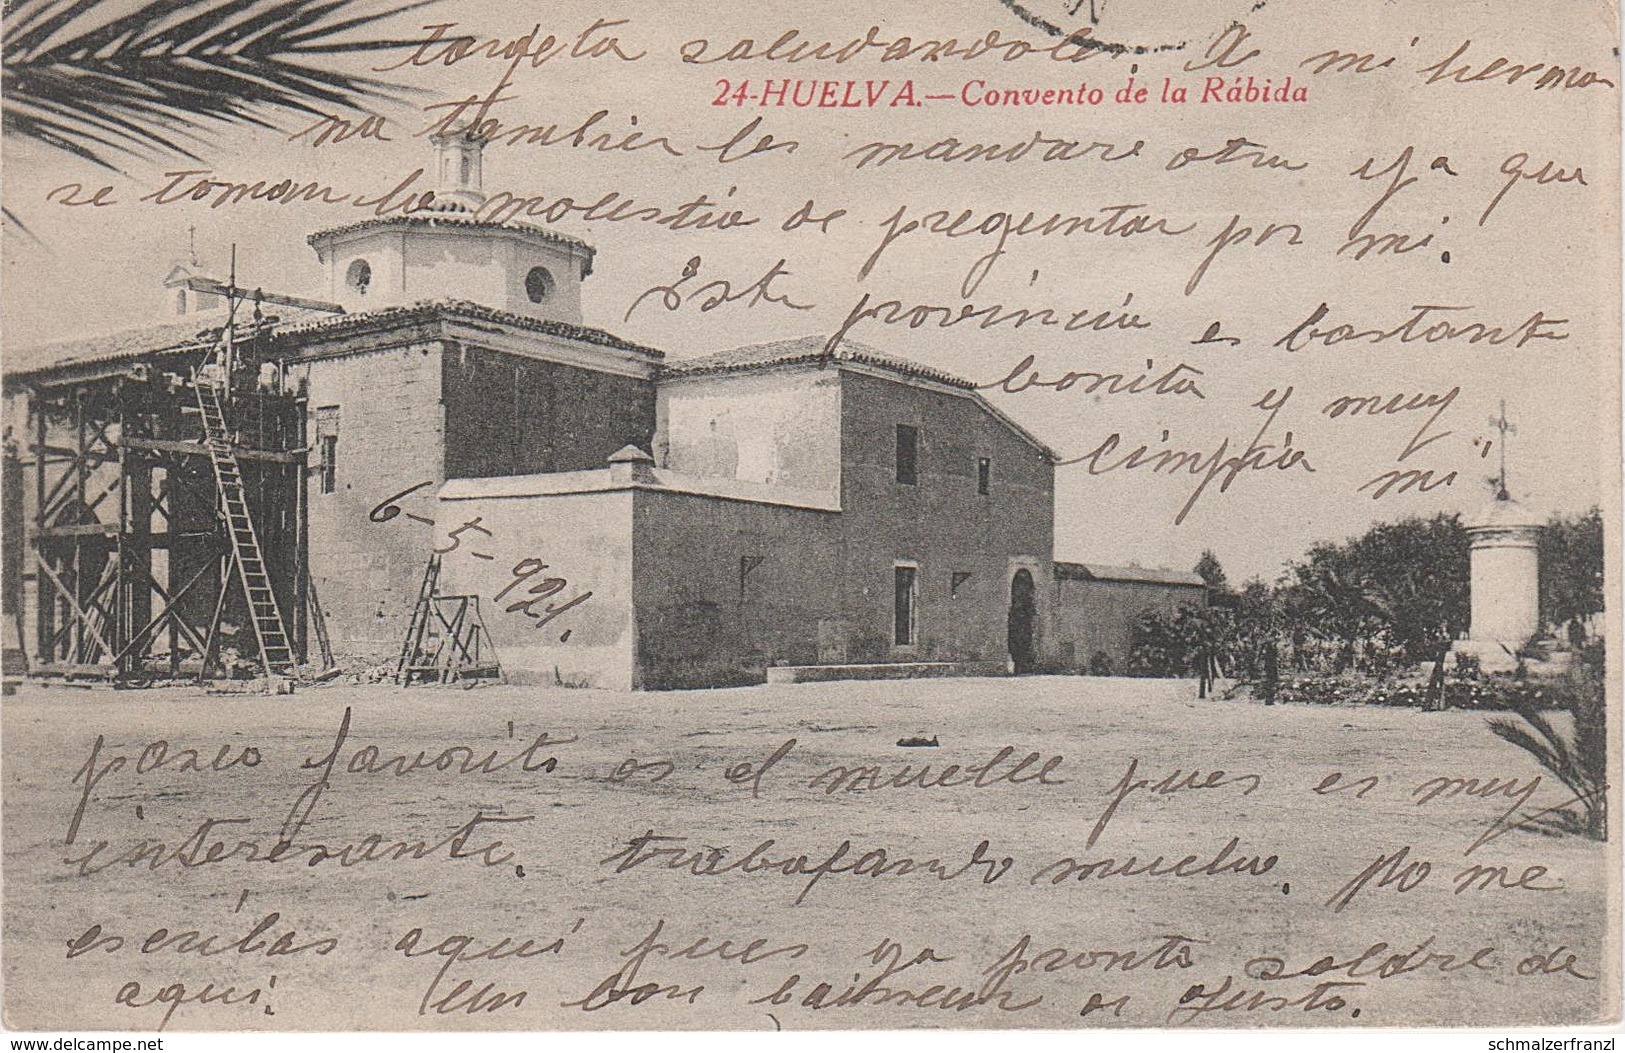 tarjeta saludandole. A mi herma
24-HUELVA.—Convento de la Rábida
na tambien les mandare otra ya que
se toman la molestia de preguntar por mi.
Esta provincia es bastante
bonita y muy
limpia mi
6-5-921.
paseo favorito es el muelle pues es muy
interesante. trabajando mucho. No me
escribas aquí pues ya pronto saldre de
aquí. Un bon de Justo.
www.delcampe.net
schmalzerfranzl